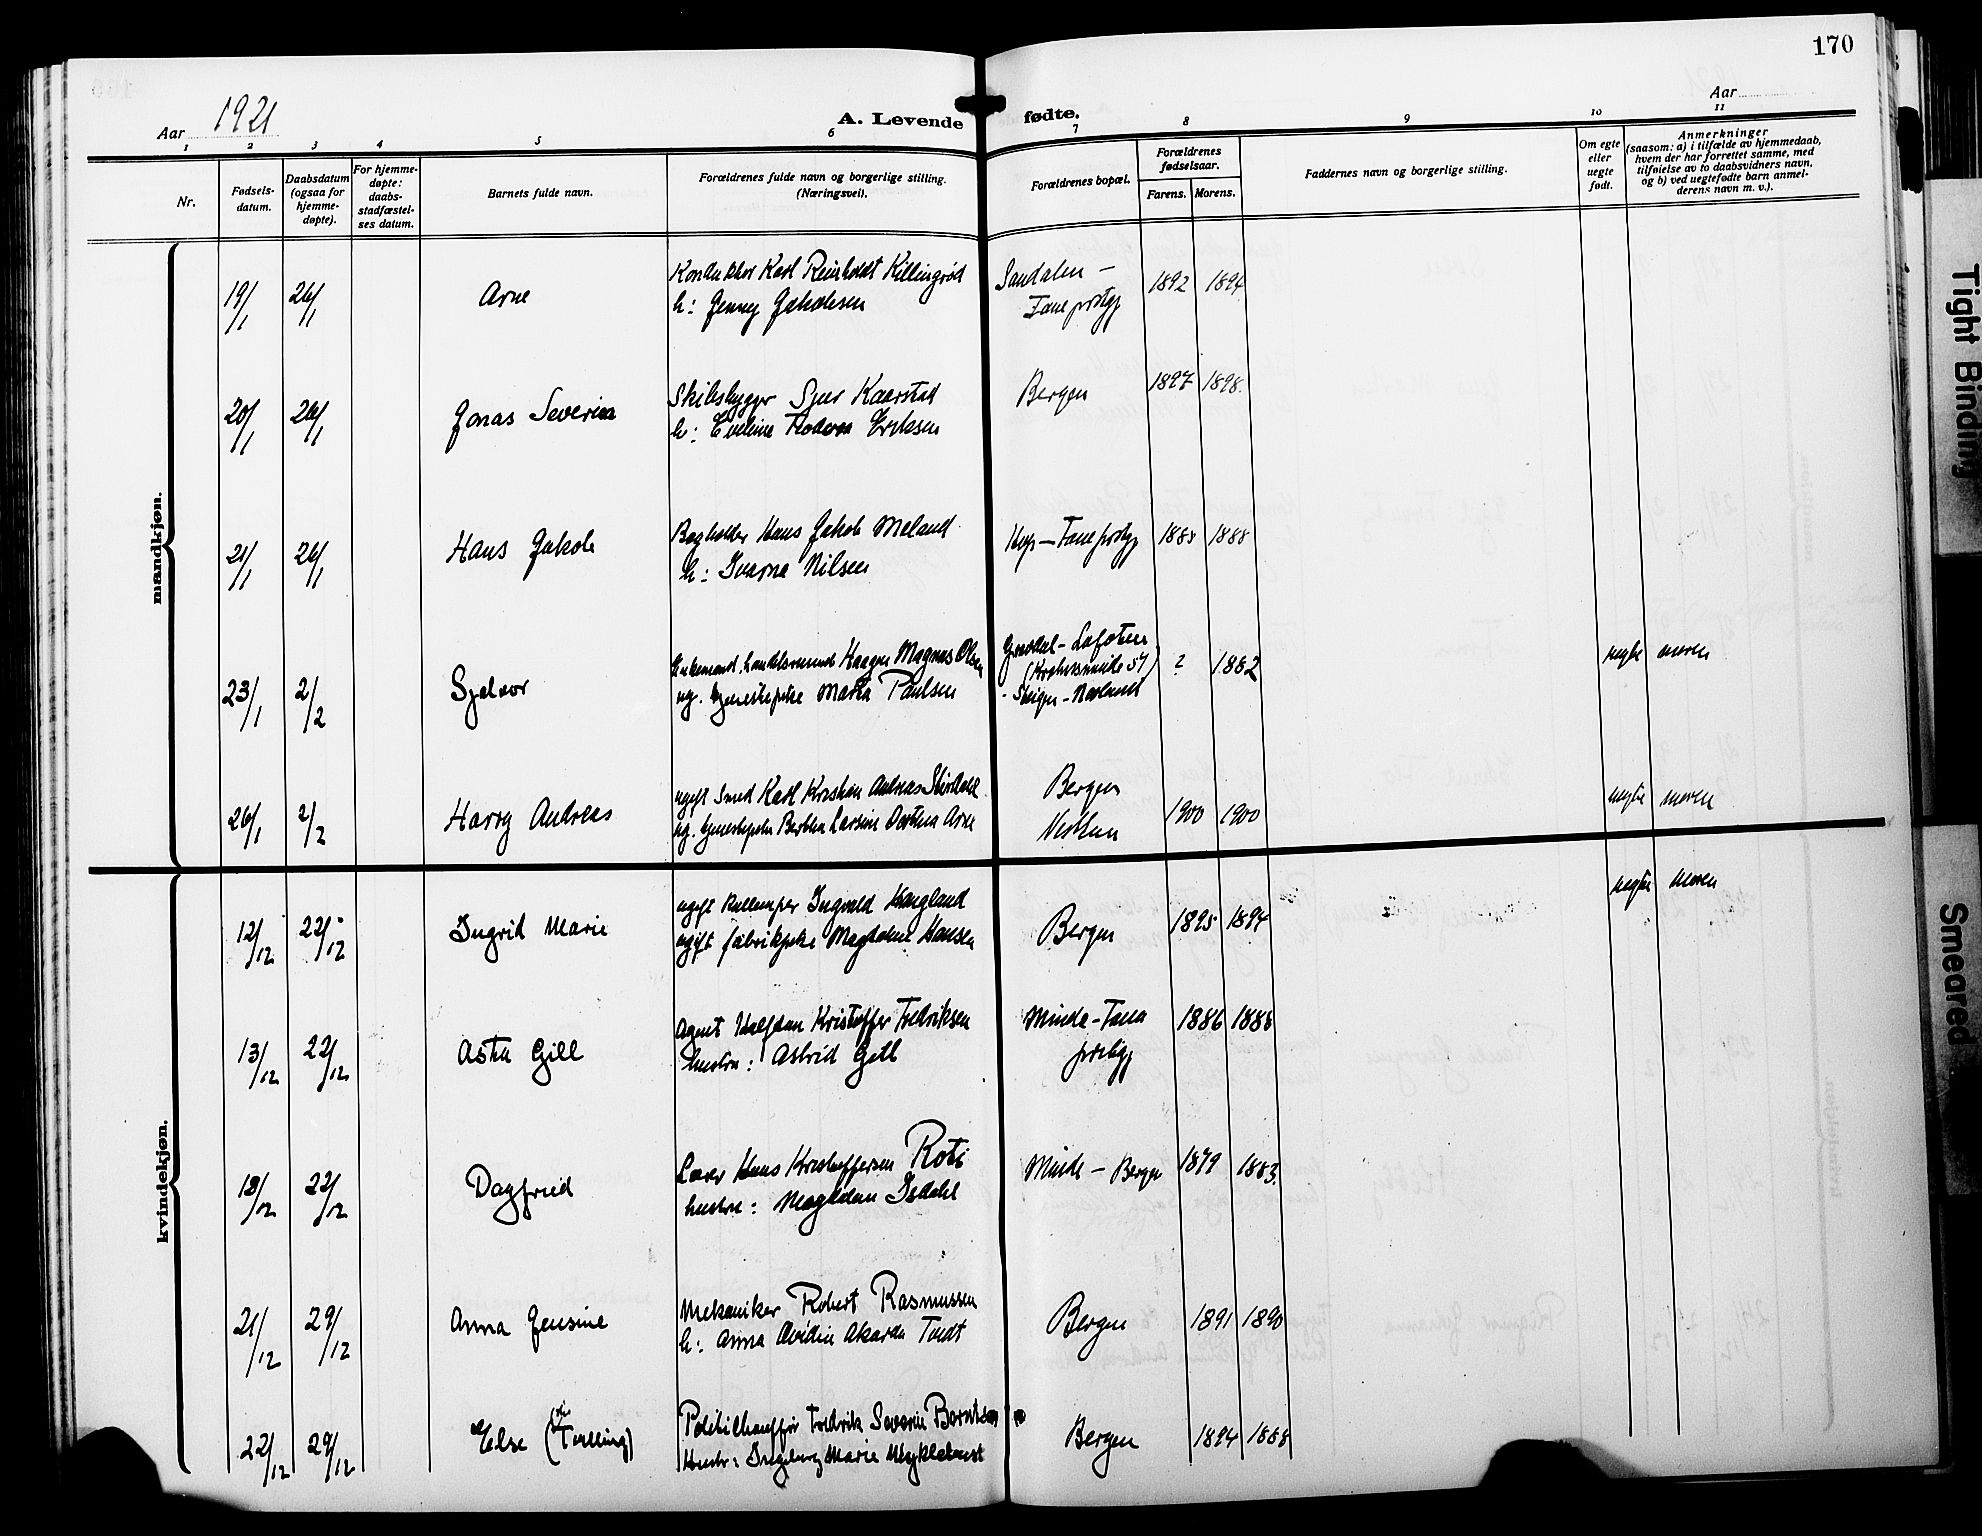 170
Aar 1921
A. Levende fødte.
Aar
1 2 3 4 5 6 7 8 9 10 11
Nr.
Fødsels-
datum.
Daabsdatum
(ogsaa for
hjemme-
døpte).
For hjemme-
døpte:
daabs-
stadfæstel-
ses datum.
Barnets fulde navn.
Forældrenes fulde navn og borgerlige stilling.
(Næringsvei).
Forældrenes bopæl.
Forældrenes
fødselsaar.
Farens. Morens.
Faddernes navn og borgerlige stilling.
Om egte
eller
uegte
født.
Anmerkninger
(saasom: a) i tilfælde av hjemmedaab,
hvem der har forrettet samme, med
tilføielse av to daabsvidners navn,
og b) ved uegtefødte barn anmel-
derens navn m. v.).
mandkjøn.
19/1 26/1 Arne
Konduktør Karl Reinholdt Killingrød
h: Jenny Jakobsen
Sandalen -
Fane prstgj
1892 1894
20/1 26/1 Jonas Severin
Skibsbygger Sjur Kaarstad
h: Eveline Eriksen
Bergen 1897 1898.
21/1 26/1 Hans Jakob
Bogholder Hans Jakob Meland
h: Ivarna Nilsen
Hop - Fane prstgj 1888
23/1 2/2 Sjalvor
Enkemand, handelsmand Haagen Magnus Olsen
ug. tjenestepike Maria Paulsen
Gravdal - Lofoten
Steigen - Norland
? 1882 uegte moren
26/1 2/2 Harry Andreas
ugift Smed Karl Kristian Andreas
ug. tjenestepike Larsine Dortea Arne
Bergen
Nesttun
1900 1900 uegte moren
kvindekjøn.
12/12 22/12 Ingrid Marie
ugift Ingvald Haugland
ugift fabrikpike Magdalene Hansen
Bergen 1895 1894 uegte moren
13/12 22/12 Asta Gill
Agent Halfdan Kristoffer Fredriksen
hustru: Astrid Gill
Minde - Fana
prstgj
1886 1888
18/12 22/12 Dagfried
Lærer Hans Kristoffersen Roti
hustru: Magdalene Isdahl
Minde - Bergen 1879 1883.
21/12 29/12 Anna Jensine
Mekaniker Robert Rasmussen
h: Anna Ovidia Tvedt
Bergen 1891 1890
22/12 29/12 Else (Tvilling)
Politichauffør Fredrik Severin Berntsen
Hustr: Ingeborg Marie Myklebust
Bergen 1894 1888
Tight Binding
Smeared